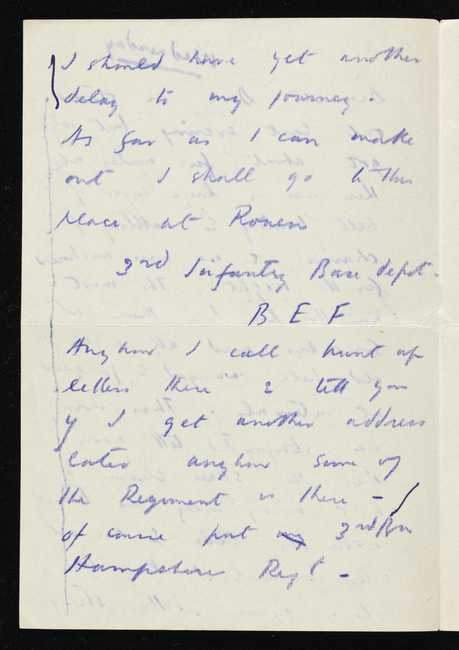 I should have yet another
delay to my journey.
As far as I can make
out I shall go to this
place at Rouen
3rd Infantry Base depot.
B E F
Anyhow I call hunt up
letters there & tell you
if I get another address
later anyhow some of
the Regiment is there -
of course put 3rd Bn
Hampshire Regt -